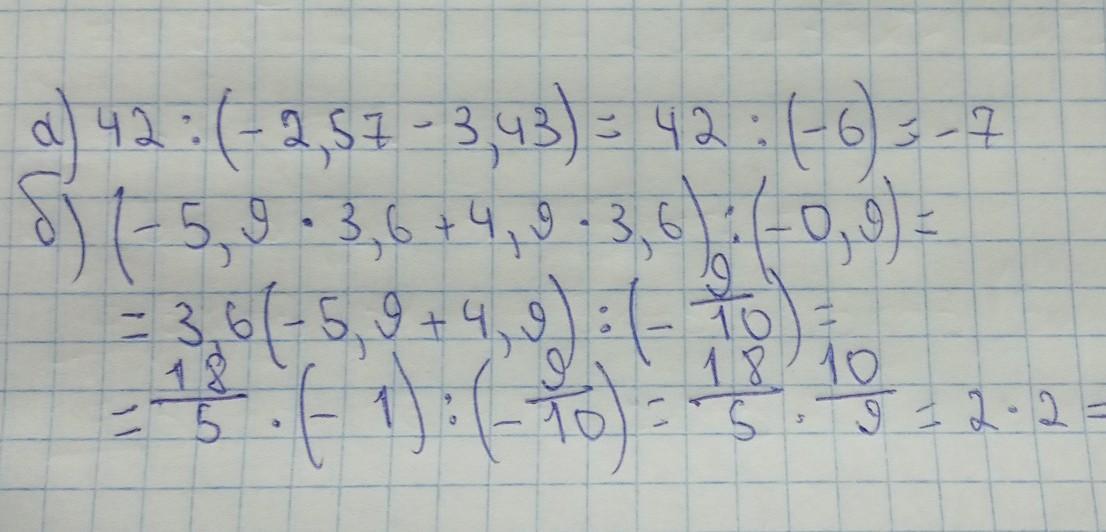 а) 42 : (- 2,57 - 3,43) = 42 : (-6) = -7
б) (- 5,9 · 3,6 + 4,9 · 3,6) : (-0,9) =
= 3,6(-5,9 + 4,9) : (- 9/10) =
= 18/5 · (- 1) : (- 9/10) = 18/5 · 10/9 = 2 · 2 =